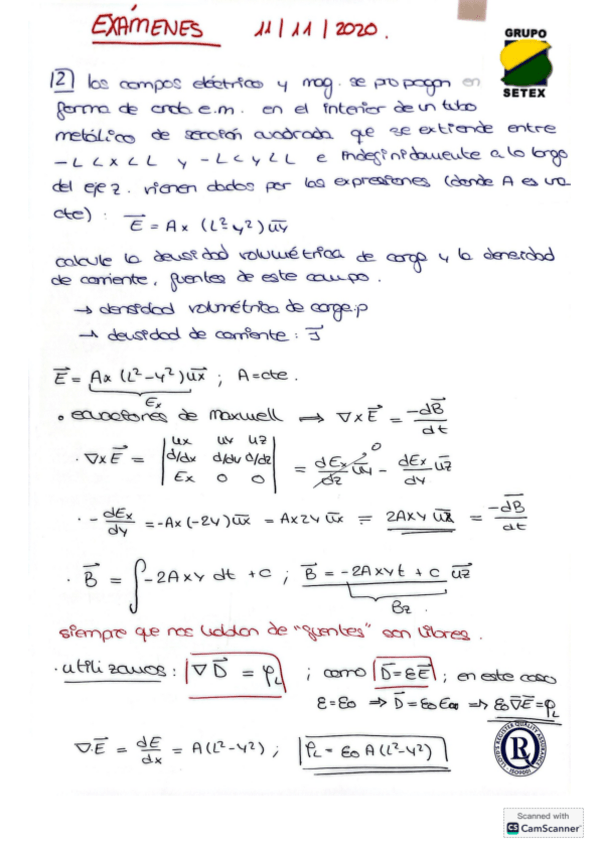 EXÁMENES 11/11/2020.
GRUPO
SETEX
12 los campos eléctrico y mag. se propagan en
forma de onda e.m. en el interior de un tubo
metálico de sección cuadrada que se extiende entre
-L<x<L y -L<y<L e indefinidamente a lo largo
del eje z. vienen dados por las expresiones (donde A es una
cte) : E⃗ = Ax (L²-y²) u⃗y
calcule la densidad volumétrica de carga y la densidad
de corriente, fuentes de este campo.
→ densidad volumétrica de carga: ρ
→ densidad de corriente : J⃗
E⃗ = Ax (L²-y²) u⃗x ; A=cte.
Ex
• ecuaciones de maxwell ⟹ ∇xE⃗ = -dB⃗/dt
· ∇xE⃗ = |ux uy uz; d/dx d/dy d/dz; Ex 0 0| = dEx/dz u⃗y - dEx/dy u⃗z
0
· - dEx/dy = -Ax(-2y) u⃗x = Ax2y u⃗x = 2Axy u⃗z = -dB⃗/dt
· B⃗ = ∫-2Axy dt + c ; B⃗ = -2Axyt + c u⃗z
Bz.
siempre que nos hablan de "fuentes" son libres.
· utilizamos : ∇D⃗ = ρL ; como D⃗=εE⃗ ; en este caso
ε=ε0 ⟹ D⃗=ε0 ⟹ ε0∇⃗E⃗=ρL
∇·E⃗ = dE/dx = A(L²-y²) ; ρL = ε0 A(L²-y²)
LLOYD'S REGISTER QUALITY ASSURANCE
ISO9001
Scanned with
CS CamScanner